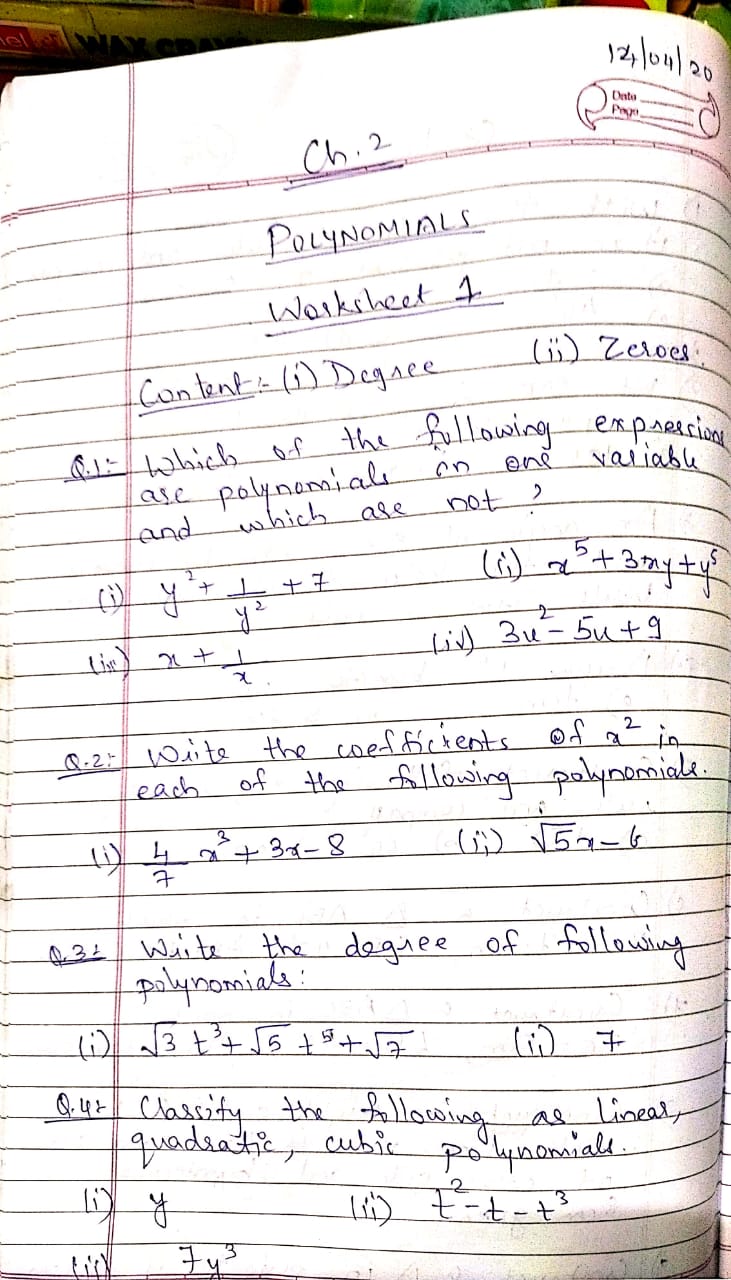 WAX CRAY
14/04/20
Date
Page
Ch. 2
POLYNOMIALS
Worksheet 1
Content :- (i) Degree (ii) Zeroes.
Q.1:- Which of the following expressions
are polynomials in one variable
and which are not ?
(i) y² + 1/y² + 7 (ii) x⁵ + 3xy + y⁵
(iii) x + 1/x. (iv) 3u² - 5u + 9
Q.2:- Write the coefficients of x² in
each of the following polynomials.
(i) 4/7 x³ + 3x - 8 (ii) √5x - 6
Q.3:- Write the degree of following
polynomials :
(i) √3 t³ + √5 t⁵ + √7 (ii) 7
Q.4:- Classify the following as linear,
quadratic, cubic polynomials.
(i) y (ii) t² - t - t³
(iii) 7y³